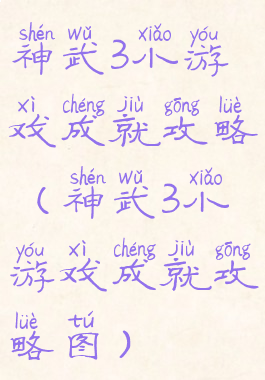 shén wǔ xiǎo yóu
神武3小游
xì chéng jiù gōng lüè
戏成就攻略
shén wǔ xiǎo
（神武3小
yóu xì chéng jiù gōng
游戏成就攻
lüè tú
略图）